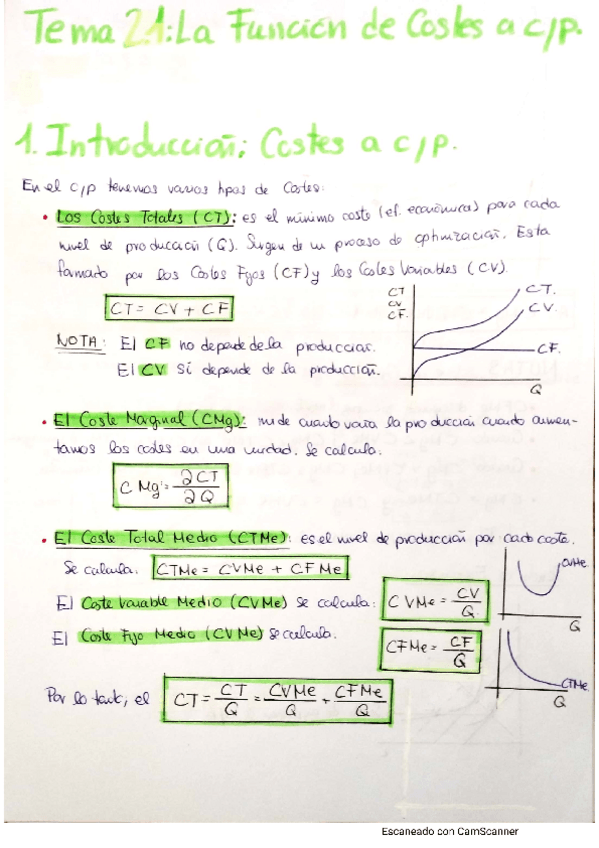 Tema 21: La Función de Costes a c/p.
1. Introducción: Costes a c/p.
En el c/p tenemos varios tipos de Costes:
• Los Costes Totales (CT): es el mínimo coste (ef. económica) para cada
nivel de producción (Q). Surgen de un proceso de optimización. Esta
formado por los Costes Fijos (CF) y los Costes Variables (CV).
CT = CV + CF
CT
CV
CF.
CT.
CV.
CF.
Q
NOTA: El CF no depende de la producción.
El CV Sí depende de la producción.
• El Coste Marginal (CMg): mide cuanto varía la producción cuando aumen-
tamos los costes en una unidad. Se calcula:
CMg = ∂CT / ∂Q
• El Coste Total Medio (CTMe): es el nivel de producción por cada coste.
Se calcula. CTMe = CVMe + CFMe
CVMe
Q
El Coste Variable Medio (CVMe) se calcula: CVMe = CV / Q
El Coste Fijo Medio (CVMe) se calcula. CFMe = CF / Q
CTMe
Q
Por lo tanto, el CT = CT / Q = CVMe / Q + CFMe / Q
Escaneado con CamScanner